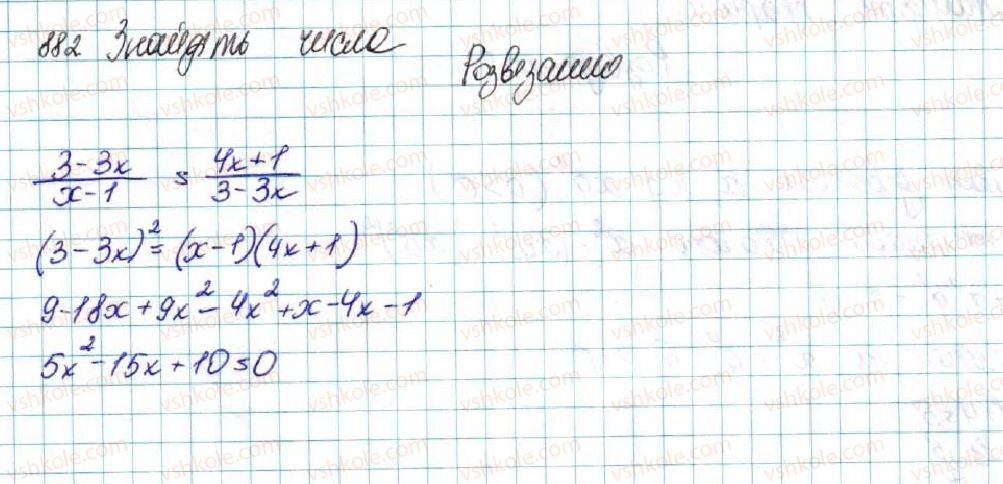 882 Знайдіть числа
Розвезанно
3-3x/x-1 = 4x+1/3-3x
(3-3x)²=(x-1)(4x+1)
9-18x+9x²-4x²+x-4x-1
5x²-15x+10=0